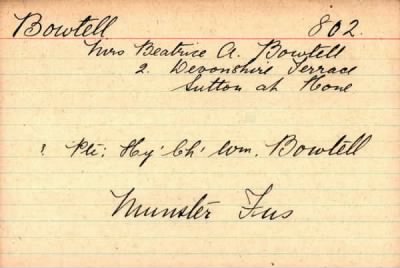 Bowtell 802.
Mrs Beatrice A. Bowtell
2. Devonshire Terrace
Sutton at Hone
Pte: Hy' Ch' Wm. Bowtell
Munster Fus